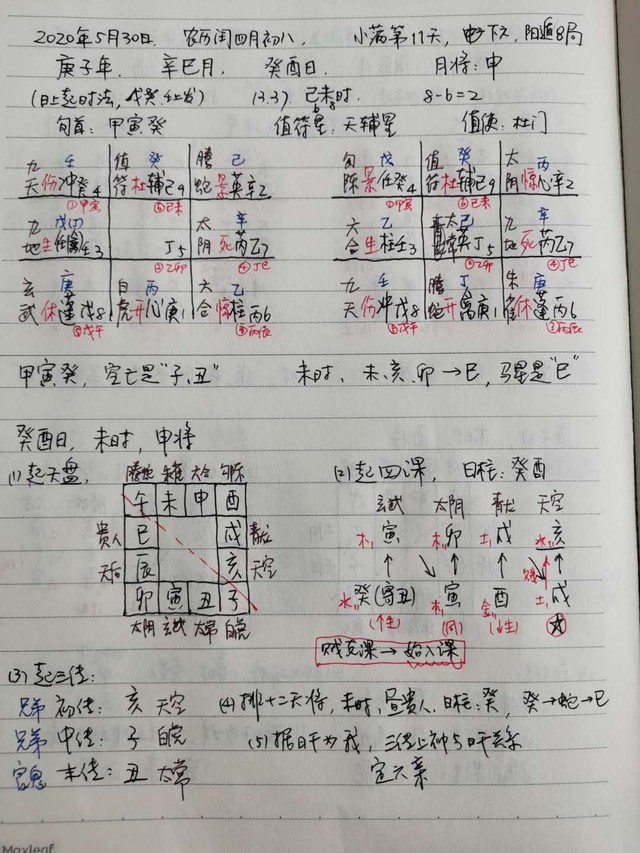 2020年5月30日. 农历闰四月初八, 小满第11天, 下元, 阳遁8局
庚子年. 辛巳月. 癸酉日. 月将:申
(日上起时法, 戊癸壬子发) (3.3) 己未时. 8-6=2
旬首: 甲寅癸 值符星:天辅星 值使:杜门
九 壬 值 癸 腾 己 勾 戊 值 癸 太 丙
天伤冲癸4 符杜辅己9 蛇景英辛2 陈景任癸4 符杜辅己9 阴惊心辛2
①甲寅 ⑥己未 ①甲寅 ⑥己未
九 戊(丁) 太 辛 六 乙 九 辛
地生任壬3 丁5 阴死芮乙7 合生柱壬3 英丁5 地死芮乙7
②乙卯 ④丁巳 ②乙卯 ④丁巳
玄 庚 白 丙 六 乙 九 壬 腾 丁 朱 庚
武休蓬戊8 虎开心庚1 合惊柱丙6 天伤冲戊8 蛇开禽庚1 雀休蓬丙6
⑤戊午 ③丙辰 ⑤戊午 ③丙辰
甲寅癸, 空亡是"子、丑" 未时, 未、亥、卯→巳, 马星是"巳"
癸酉日, 未时, 申将
(1) 起天盘, 腾蛇 朱雀 六合 勾陈 (2) 起四课, 日柱:癸酉
午 未 申 酉 玄武 太阴 青龙 天空
贵人 巳 戌 青龙 木 寅 木 卯 土 戌 水 亥
天后 辰 亥 天空
卯 寅 丑 子 水 癸(寄丑) 木 寅 金 酉 土 戌
太阴 玄武 太常 白虎 (↑生) (同) (↓生)
贼克课→始入课
(3) 起三传:
兄弟 初传: 亥 天空 (4) 排十二天将, 未时, 昼贵人. 日柱:癸, 癸→蛇→巳
兄弟 中传: 子 白虎 (5) 据日干为我, 三传上神与日干关系
官鬼 末传: 丑 太常 定六亲
Maxleaf